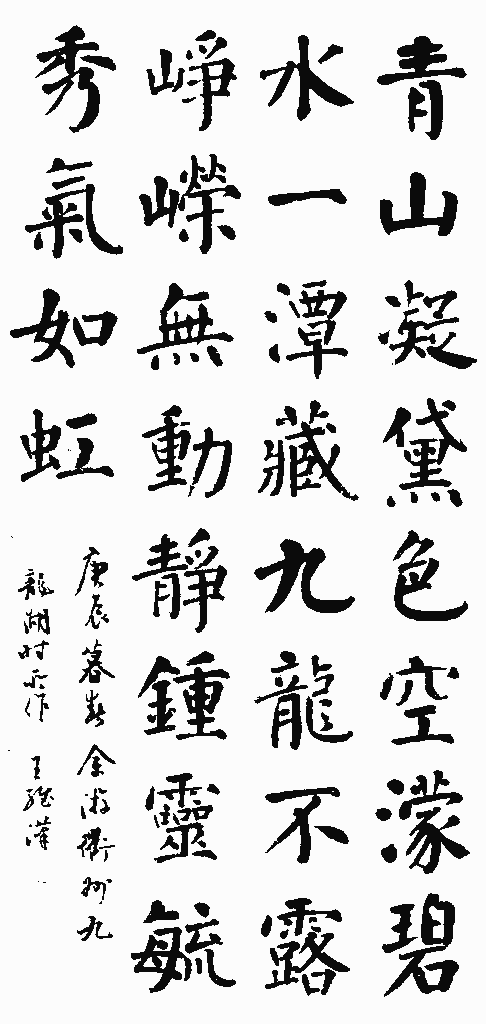 青山凝黛色空濛碧
水一潭藏九龍不露
崢嶸無動靜鍾靈毓
秀氣如虹
庚辰暮春余游衢州九
龍湖时所作王繼漢